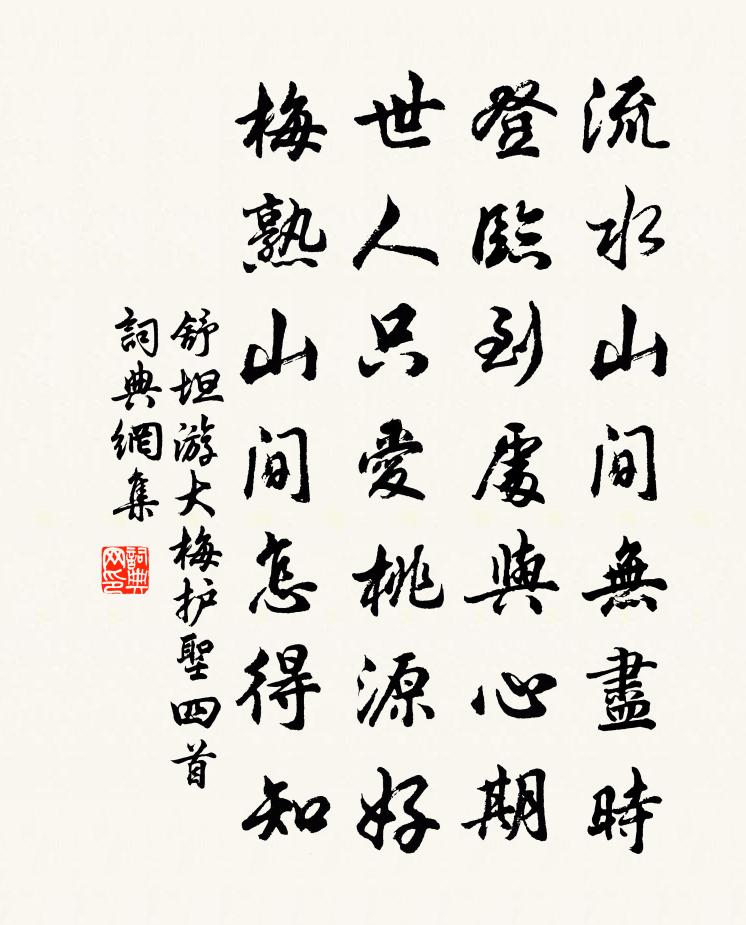 流水山间無盡時
登臨到處與心期
世人只愛桃源好
梅熟山间怎得知
舒坦游大梅护聖四首
詞典網集
詞典網印